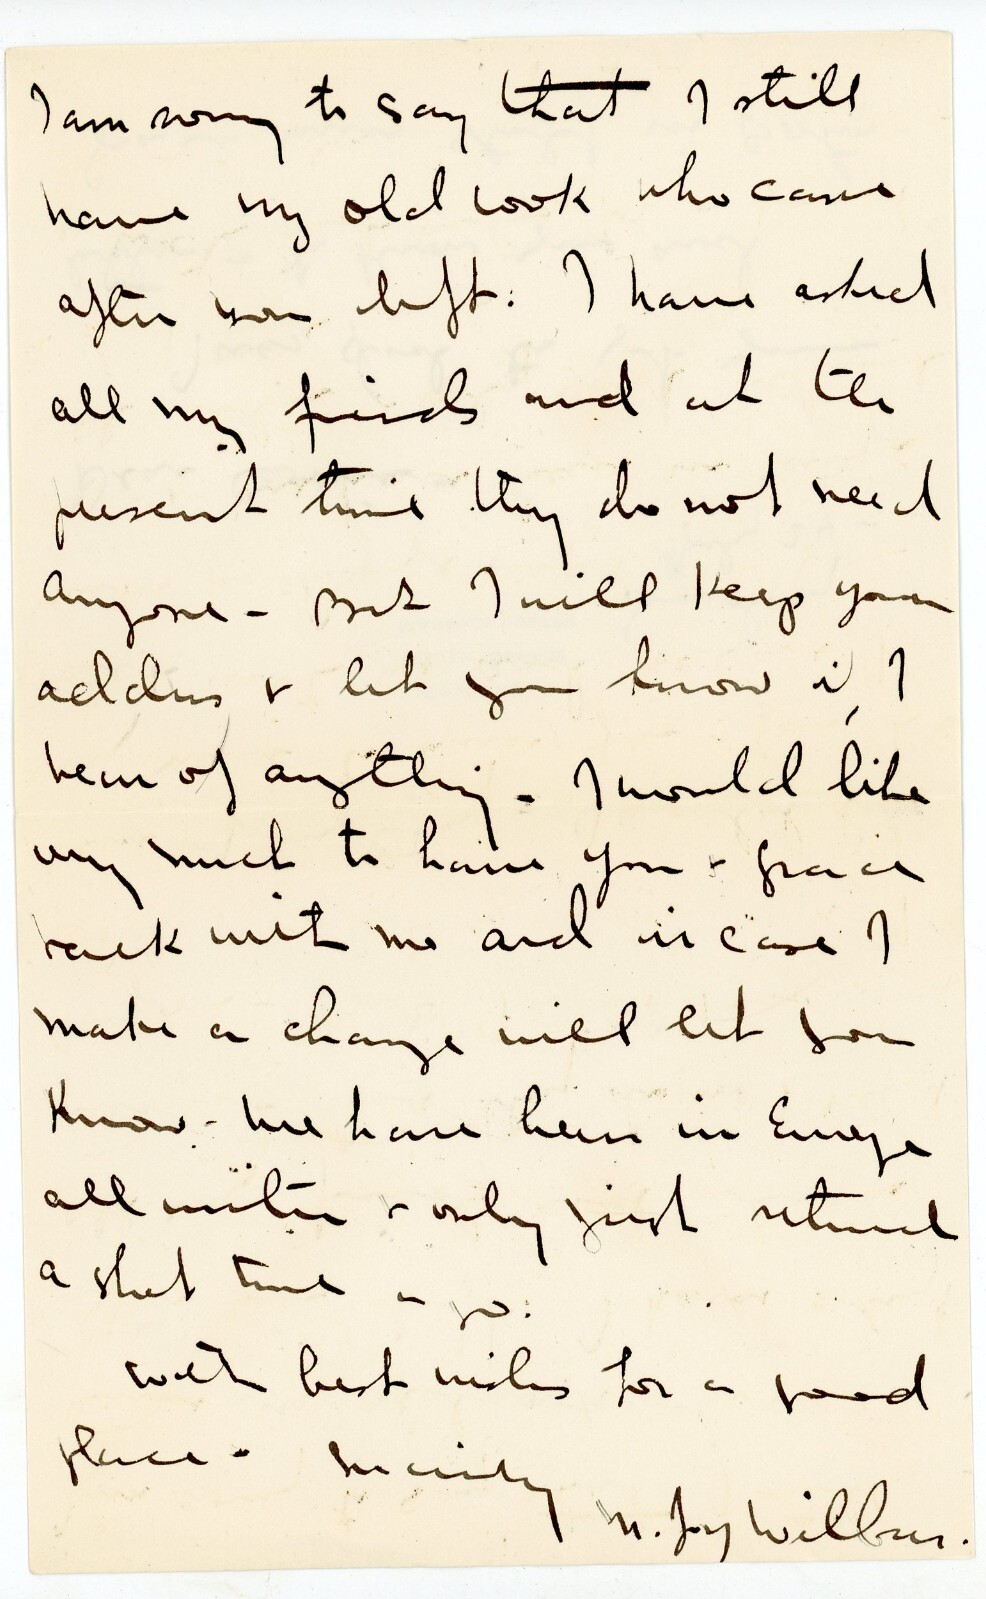 I am sorry to say that I still
have my old cook who came
after you left. I have asked
all my friends and at the
present time they do not need
anyone - But I will keep your
address & let you know if I
hear of anything - I would like
very much to have you & Gracie
back with me and in case I
make a change will let you
know - We have been in Europe
all winter & only just returned
a short time ago.
With best wishes for a good
place - Sincerely
N. Joy Wilbur.